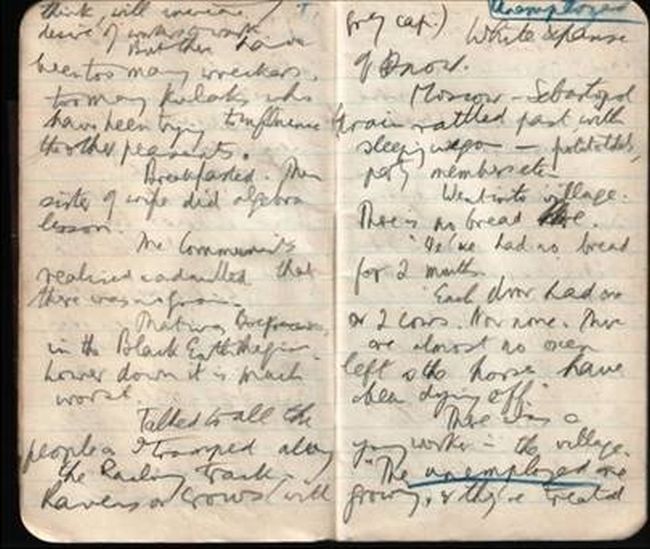 think, will increase
desire of workers to work
But there have
been too many wreckers,
too many kulaks who
have been trying to influence
the other peasants.
Breakfasted. Then
sister of wife did algebra
lesson.
The Communists
realised & admitted that
there was no grain.
That was
in the Black Earth Region.
Lower down it is much
worst.
Talked to all the
peoples I tramped along
the Railway Track.
Ravens or crows (will
Unemployed
grey cap.)
White expanse
of snow.
Moscow - Sebastopol
train rattled past with
sleeping wagon —
party members etc
Went into village.
There is no bread here.
We've had no bread
for 2 months.
Each dvor had one
or 2 cows. Now none. There
are almost no oxen
left & the horses have
been dying off."
There was a
young worker in the village.
"The unemployed are
growing, & they're treated